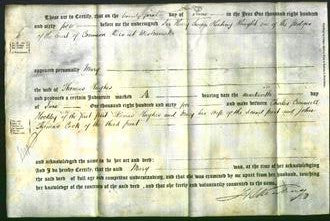 These are to Certify, that on the twenty first day of June in the Year One thousand eight hundred
and sixty before me the undersigned Sir Henry Singer Keating Knight one of the Judges
of the Court of Common Pleas at Westminster
appeared personally Mary
the wife of Thomas Hughes
and produced a certain Indenture marked A bearing date the day
of June One thousand eight hundred and sixty and made between Charles
of the first part Thomas Hughes and Mary his wife of the second part and John
Cook of the third part
and acknowledged the same to be her act and deed:
And I do hereby Certify, that the said Mary was, at the time of her acknowledging
the said deed of full age and competent understanding, and that she was examined by me apart from her husband, touching
her knowledge of the contents of the said deed, and that she freely and voluntarily consented to the same.